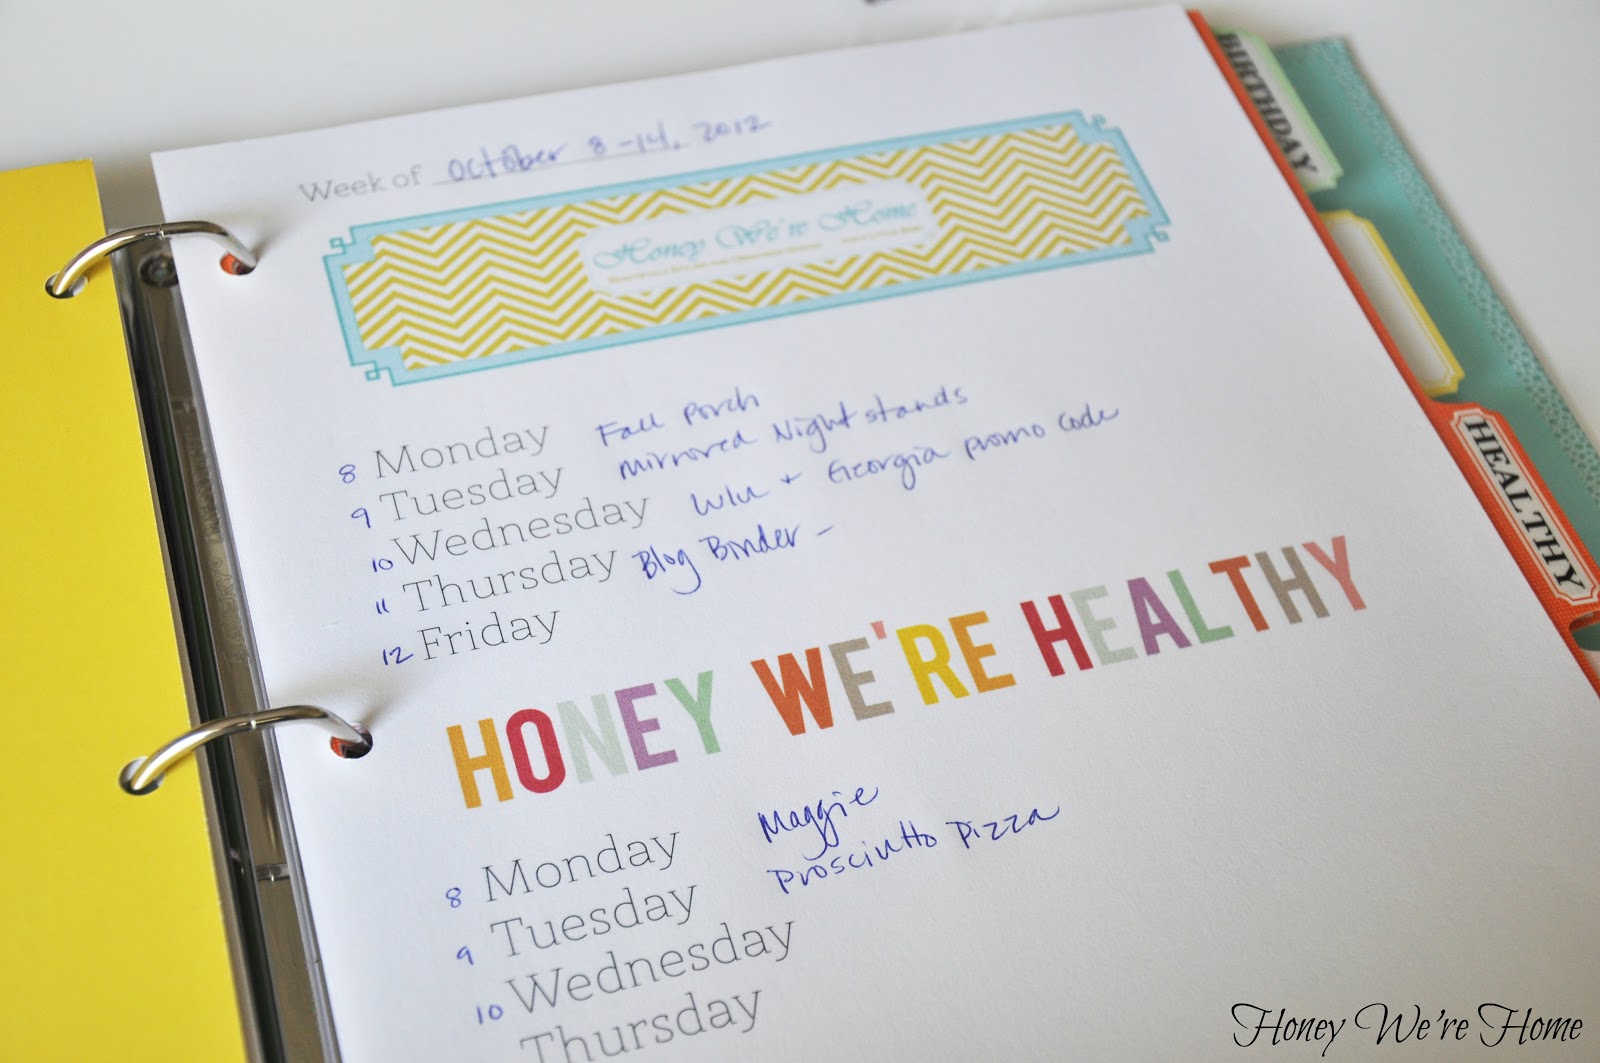 Week of October 8-14, 2012
Honey We're Home
8 Monday Fall Porch
9 Tuesday Mirrored Nightstands
10 Wednesday WIW + Georgia promo code
11 Thursday Blog Binder -
12 Friday
HONEY WE'RE HEALTHY
8 Monday Maggie
9 Tuesday Prosciutto Pizza
10 Wednesday
Thursday
BIRTHDAY
HEALTHY
Honey We're Home